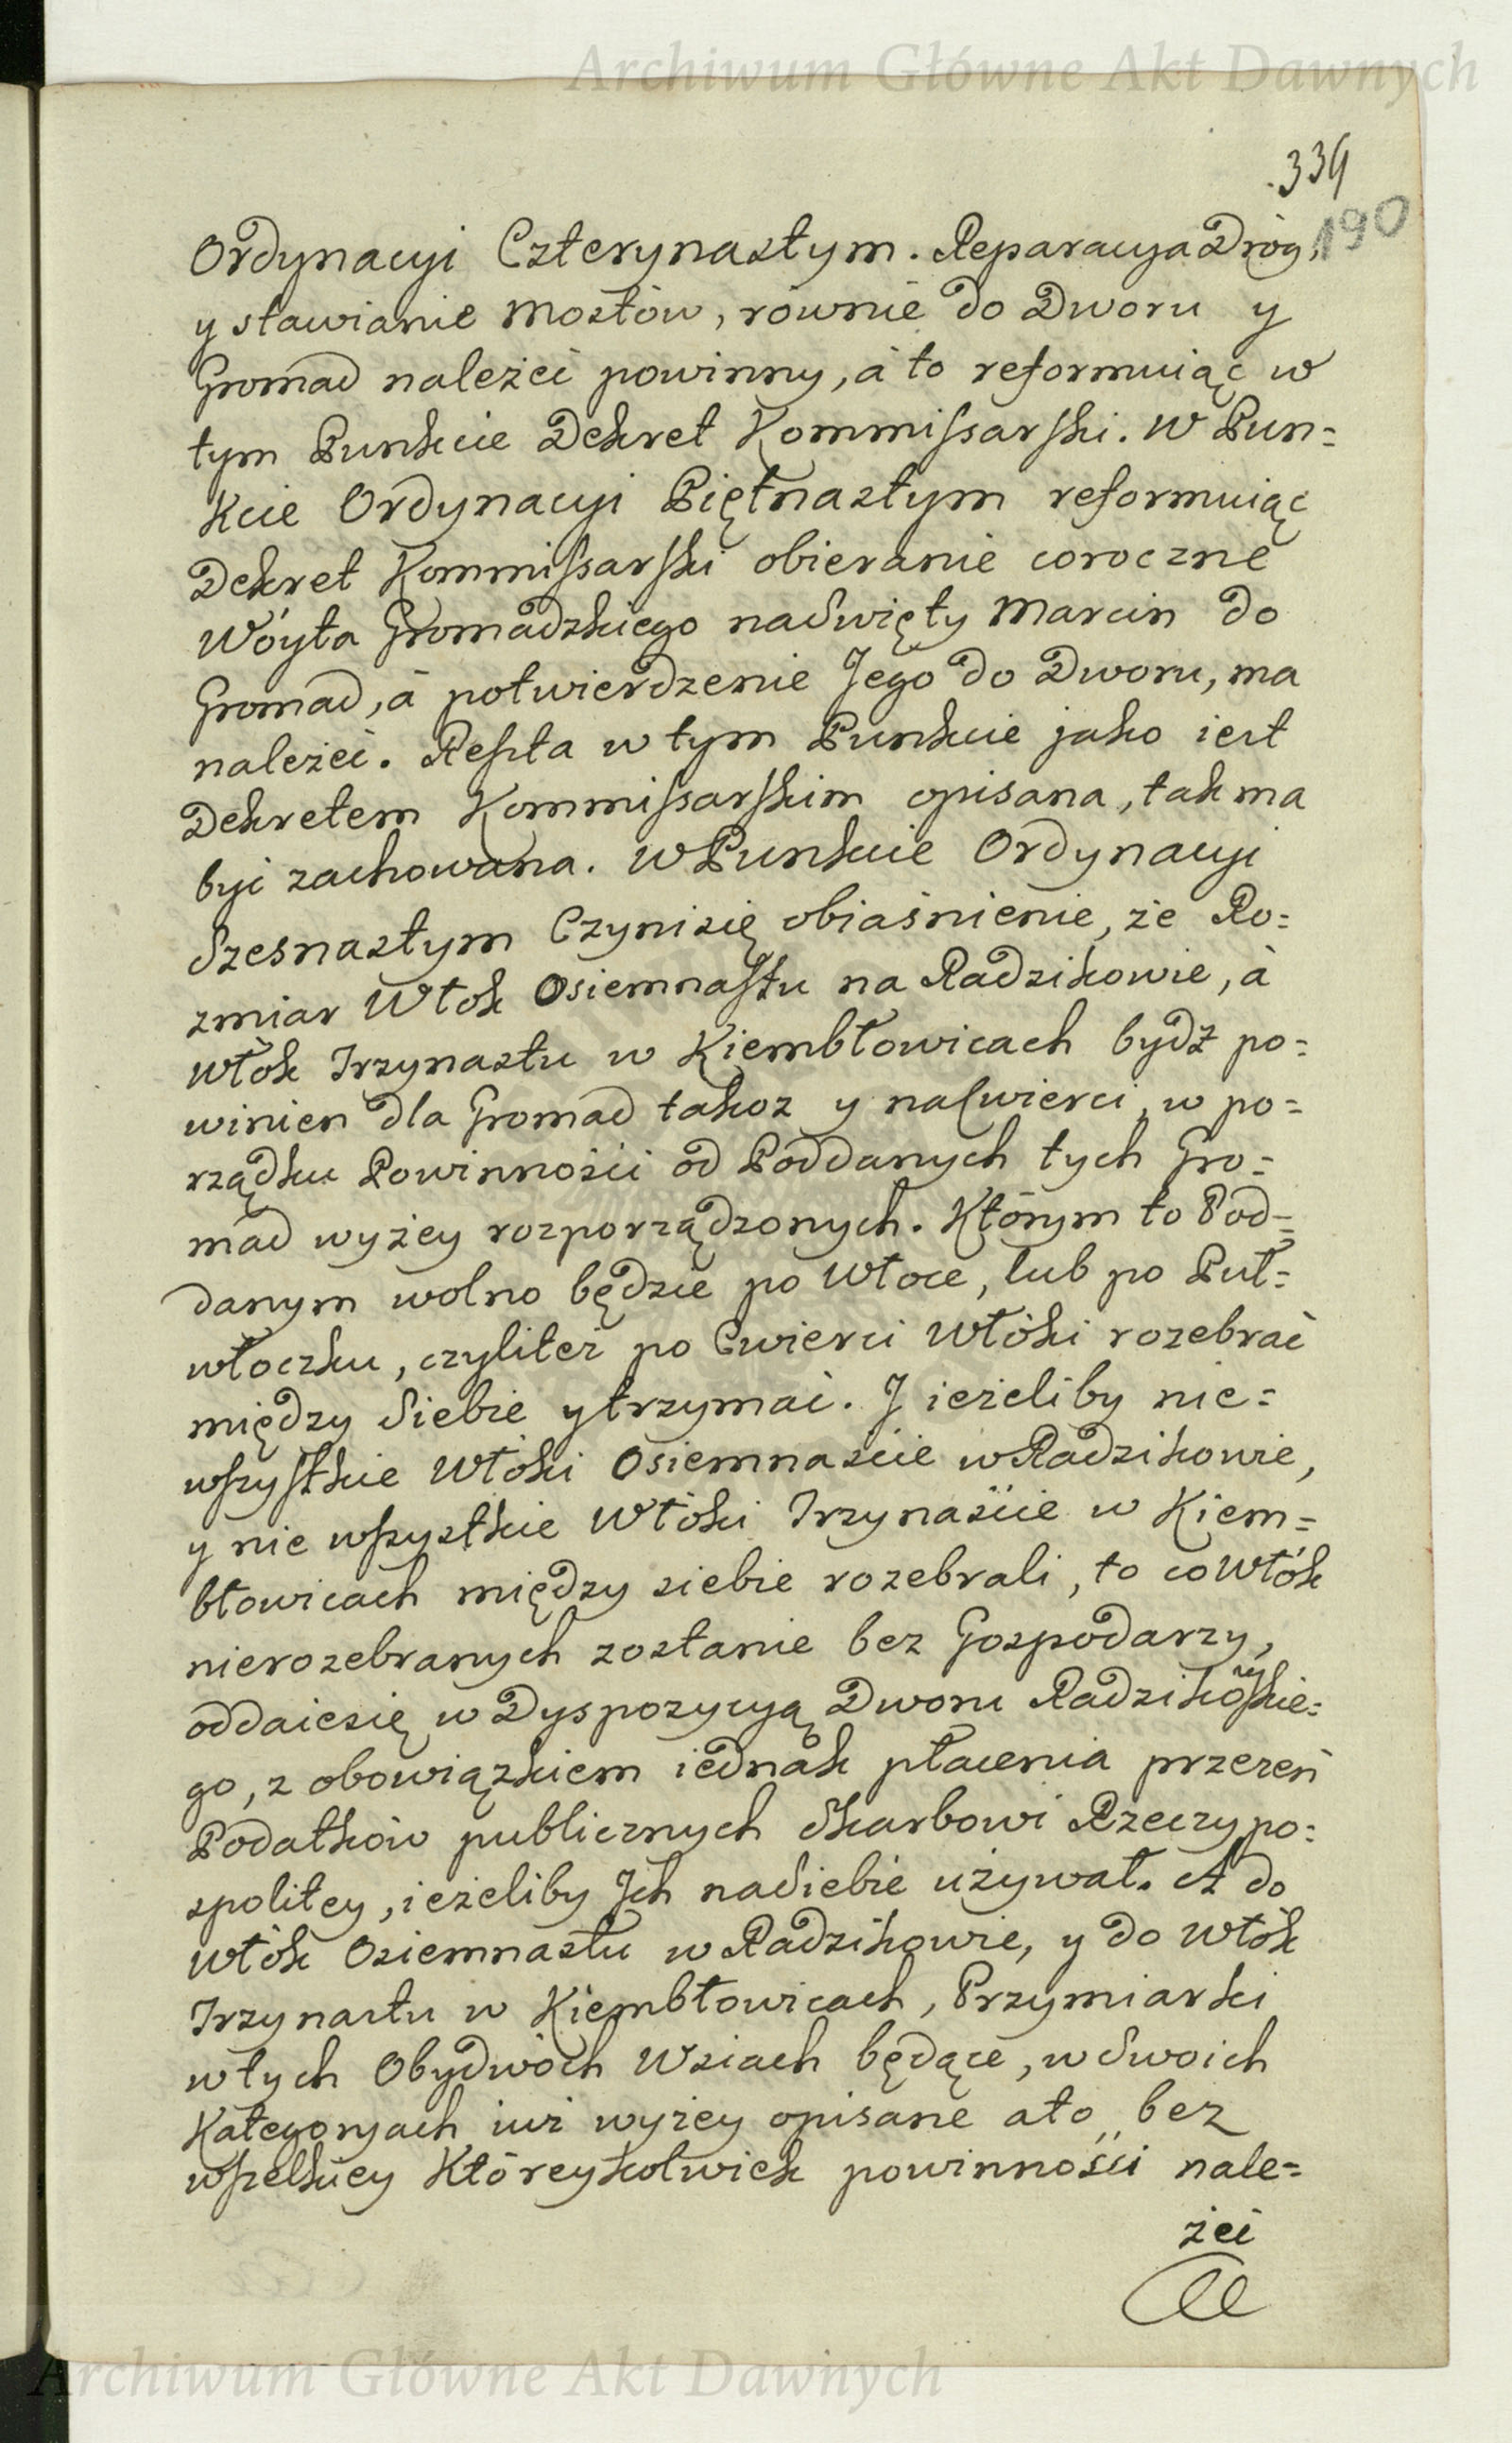 Archiwum Główne Akt Dawnych
339
190
Ordynacyi Czterynastym. Reparacya Dróg,
y stawianie Mostów, równie do Dworu y
Gromad należeć powinny, à to reformuiąc w
tym Punkcie Dekret Kommissarski. W Pun=
kcie Ordynacyi Piętnastym reformuiąc
Dekret Kommissarski obieranie coroczne
Wóyta Gromadzkiego na Swięty Marcin do
Gromad, à potwierdzenie Jego do Dworu, ma
należeć. Reszta w tym Punkcie jako iest
Dekretem Kommissarskim opisana, tak ma
być zachowana. W Punkcie Ordynacyi
Szesnastym Czyni się obiaśnienie, że Ro=
zmiar Włók Osiemnastu na Radzikowie, à
Włók Trzynastu w Kiembłowicach bydź po=
winien dla Gromad takoż y na Cwierci, w po=
rządku Powinności od Poddanych tych Gro=
mad wyżey rozporządzonych. Którym to Pod=
danym wolno będzie po Włoce, lub po Puł=
włoczku, czyliteż po Cwierci Włóki rozebrać
między Siebie y trzymać. J ieżeliby nie=
wszystkie Włóki Osiemnaście w Radzikowie,
y nie wszystkie Włóki Trzynaście w Kiem=
błowicach między siebie rozebrali, to co Włók
nierozebranych zostanie bez Gospodarzy,
oddaiesię w Dyspozycyą Dworu Radzikowskie=
go, z obowiązkiem iednak płacenia przezeń
Podatków publicznych Skarbowi Rzeczypo=
spolitey, ieżeliby Jch na Siebie używał. A do
Włók Osiemnastu w Radzikowie, y do Włók
Trzynastu w Kiembłowicach, Przymiarki
w tych Obydwóch Wsiach będące, w Swoich
Kategoryach iuż wyżey opisane a to bez
wszelkiey Któreykolwiek powinności nale=
żeć
Archiwum Główne Akt Dawnych